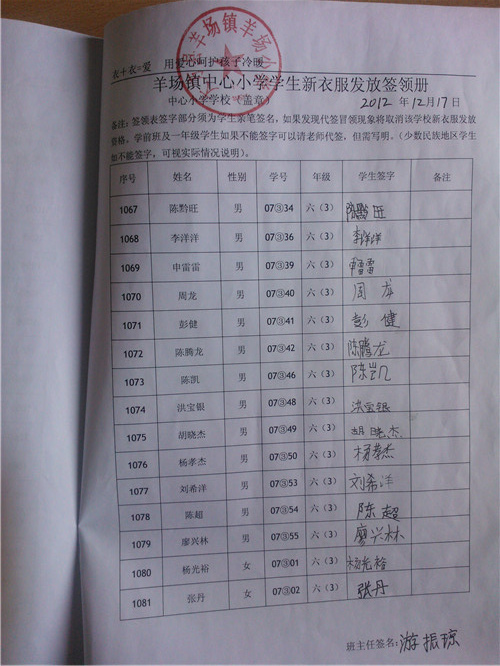 衣+衣=爱 用爱心呵护孩子冷暖
羊场镇中心小学学生新衣服发放签领册
中心小学学校（盖章） 2012 年 12月17日
备注：签领表签字部分须为学生亲笔签名，如果发现代签冒领现象将取消该学校新衣服发放
资格，学前班及一年级学生如果不能签字可以请老师代签，但需写明。（少数民族地区学生
如不能签字，可视实际情况说明）。
序号 姓名 性别 学号 年级 学生签字 备注
1067 陈黔旺 男 07③34 六（3） 陈黔旺
1068 李洋洋 男 07③36 六（3） 李洋洋
1069 申雷雷 男 07③39 六（3） 申雷雷
1070 周龙 男 07③40 六（3） 周龙
1071 彭健 男 07③41 六（3） 彭健
1072 陈腾龙 男 07③42 六（3） 陈腾龙
1073 陈凯 男 07③46 六（3） 陈凯
1074 洪宝银 男 07③48 六（3） 洪宝银
1075 胡晓杰 男 07③49 六（3） 胡晓杰
1076 杨孝杰 男 07③50 六（3） 杨孝杰
1077 刘希洋 男 07③53 六（3） 刘希洋
1078 陈超 男 07③54 六（3） 陈超
1079 廖兴林 男 07③55 六（3） 廖兴林
1080 杨光裕 女 07③01 六（3） 杨光裕
1081 张丹 女 07③02 六（3） 张丹
班主任签名：游振琼